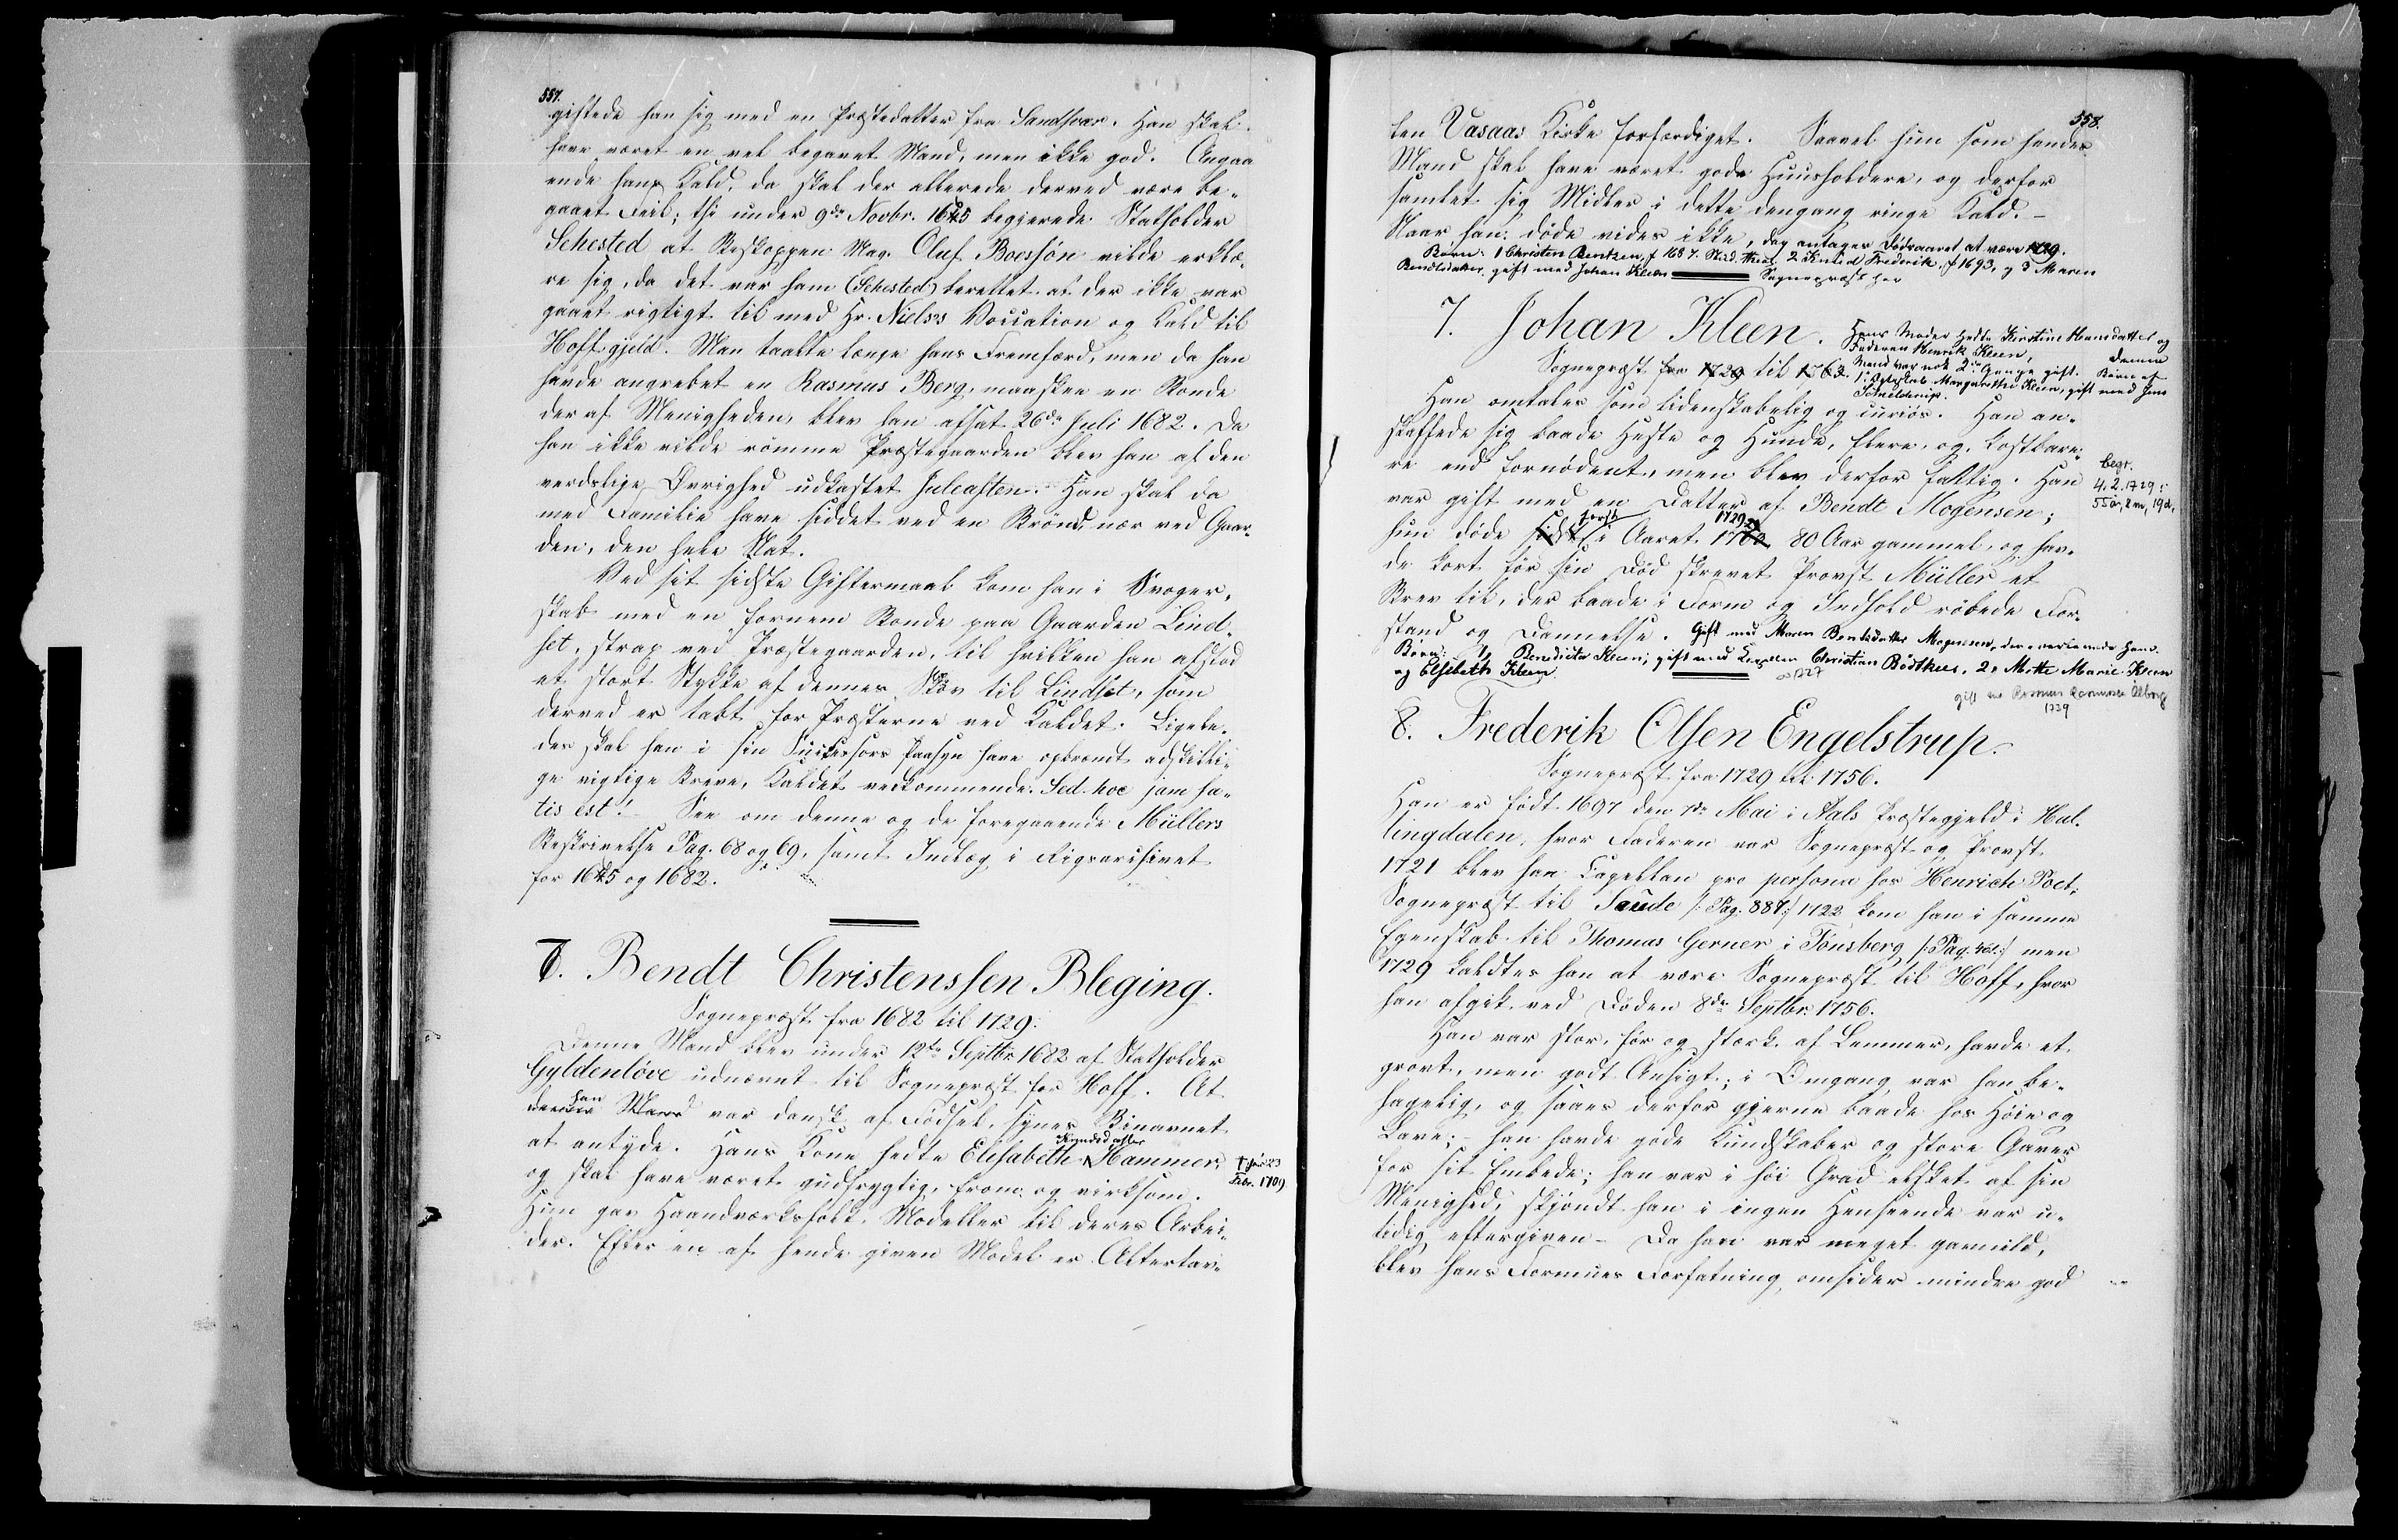 557.
giftede han sig med en Præstedatter fra Sandsvær. Han skal
have været en vel begavet Mand, men ikke god. Angaa
ende hans Kald, da skal der allerede derved være be-
gaaet Feil; thi under 9de Novbr. 1645 begjerede Statholder
Sehested at Biskoppen Mag. Oluf Boessøn vilde erklæ-
re sig, da det var ham (Sehested) berettet at der ikke var
gaaet rigtigt til med Hr. Niels's Vocation og Kald til
Hoffs gjeld. Man taalte længe hans Fremfærd, men da han
havde angrebet en Rasmus Berg, maaskee en Bonde
der af Menigheden, blev han afsat 26de Juli 1682. Da
han ikke vilde rømme Præstegaarden blev han af den
verdslige Øvrighed udkastet Juleaften. Han skal da
med Familie have siddet ved en Brønd nær ved Gaar-
den, den hele Nat.
Ved sit sidste Giftermaal kom han i Svoger-
skab med en fornem Bonde paa Gaarden Lind-
set, strax ved Præstegaarden, til hvilken han afstod
et stort Stykke af dennes Skov til Lindset, som
derved er tabt for Præsterne ved Kaldet. Ligele-
des skal han i sin Successors Paasyn have opbrændt adskilli-
ge vigtige Breve, Kaldet vedkommende. Sed hoc jam sa-
tis est! See om denne og de foregaaende Müllers
Beskrivelse Pag. 68 og 69, samt Indlæg i Rigsarchivet
for 1645 og 1682.
7. Bendt Christenssen Bleging.
Sognepræst fra 1682 til 1729.
Denne Mand blev under 12te Septbr 1682 af Statholder
Gyldenløve udnævnt til Sognepræst for Hoff. At
han
denne Mand var dansk af Fødsel, synes Binavnet
at antyde. Hans Kone hedte Elisabeth Knudsdatter Hammer,
† før 23
Febr. 1709
og skal have været gudfrygtig, from og virksom.
Hun gav Haandværksfolk Modeller til deres Arbei-
der. Efter en af hende given Model er Altertav-
558.
len Vasaas Kirke forfærdiget. Saavel hun som hendes
Mand skal have været gode Huusholdere, og derfor
samlet sig Midler i dette dengang ringe Kald. –
Naar han døde vides ikke, dog antages Dødsaaret at være 1729.
Børn: 1 Christen Bentzen, f 1687. 2 Knud Frederik, f 1693, og 3 Maren
Bendtsdatter gift med Johan Kleen Sognepræst her
7. Johan Kleen.
Hans Moder hedte Kirstine Hansdatter og
Faderen Henrik Kleen,
Denne
Mand var nok 2de Gange gift. Børn af
1ste Ægteskab Margarethe Kleen, gift med Jens
Schielderup.
Sognepræst fra 1729 til 1763.
Han omtales som lidenskabelig og curiøs. Han an-
skaffede sig baade Heste og Hunde, flere og kostbare-
re end fornødent, men blev derfor fattig. Han
begr.
4.2.1729:
55 år, 2 m, 19 d.
var gift med en Datter af Bendt Mogensen;
hun døde sidst først i Aaret 1760 1729 80 Aar gammel, og hav-
de kort før sin Død skrevet Provst Müller et
Brev til, der baade i Form og Indhold røbede For-
stand og Dannelse. Gift med Maren Bendtsdatter Mogensen, der overlevede ham.
Børn: 1, Benedicta Kleen; gift med Capellan Christian Bødtker, 2. Mette Marie Kleen
∞ 1727
og Elsebeth Kleen.
gift m Rasmus Rasmussen Ålborg
1739
8. Frederik Olsen Engelstrup.
Sognepræst fra 1729 til 1756.
Han er født 1697 den 7de Mai i Aals Præstegjeld i Hal-
lingdalen, hvor Faderen var Sognepræst og Provst.
1721 blev han Capellan pro persona hos Henrich Poct,
Sognepræst til Saude /: Pag. 887:/ 1722 kom han i samme
Egenskab til Thomas Gerner i Tønsberg /: Pag. 461:/ men
1729 kaldtes han at være Sognepræst til Hoff, hvor
han afgik ved Døden 8de Septbr. 1756.
Han var stor, før og stærk af Lemmer, havde et
grovt, men godt Ansigt; i Omgang var han be-
hagelig, og saaes derfor gjerne baade hos Høie og
Lave; – han havde gode Kundskaber og store Gaver
for sit Embede; han var i høi Grad elsket af sin
Menighed, skjøndt han i ingen Henseende var u-
tidig eftergiven – Da han var meget gavmild,
blev hans Formues Forfatning omsider mindre god